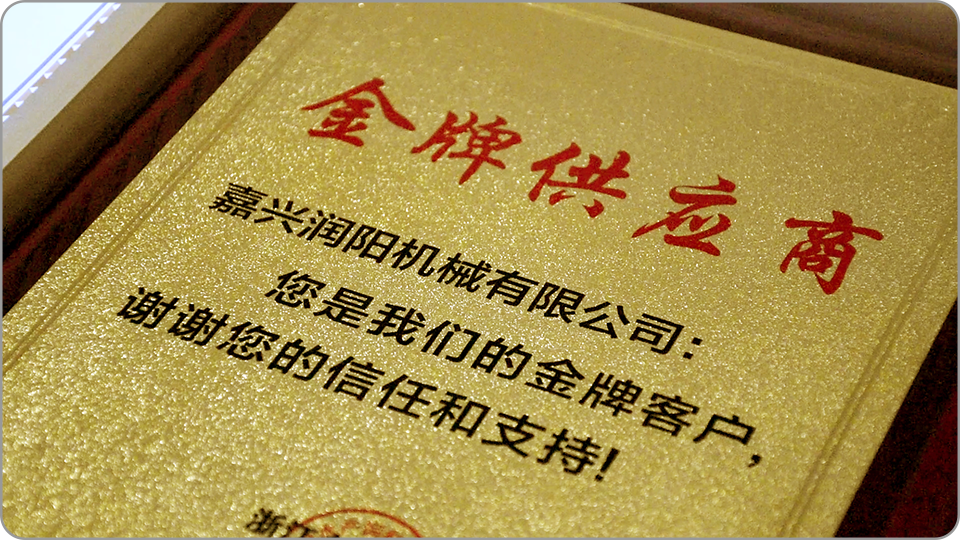 金牌供应商
嘉兴润阳机械有限公司：
您是我们的金牌客户，
谢谢您的信任和支持！
浙江